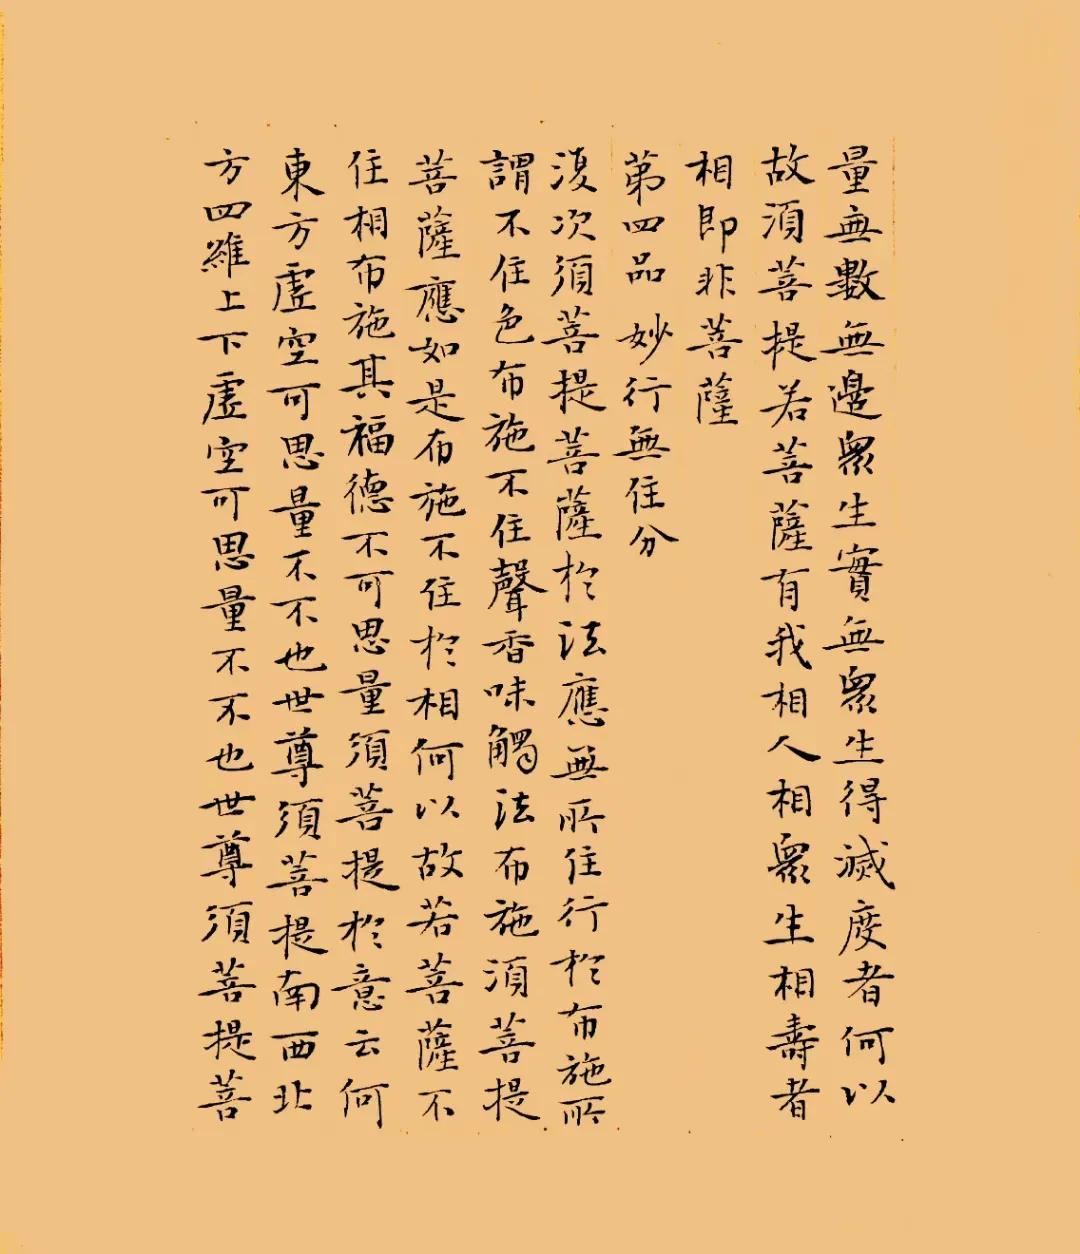 量無數無邊眾生實無眾生得滅度者何以
故須菩提若菩薩有我相人相眾生相壽者
相即非菩薩
第四品 妙行無住分
復次須菩提菩薩於法應無所住行於布施所
謂不住色布施不住聲香味觸法布施須菩提
菩薩應如是布施不住於相何以故若菩薩不
住相布施其福德不可思量須菩提於意云何
東方虛空可思量不不也世尊須菩提南西北
方四維上下虛空可思量不不也世尊須菩提菩